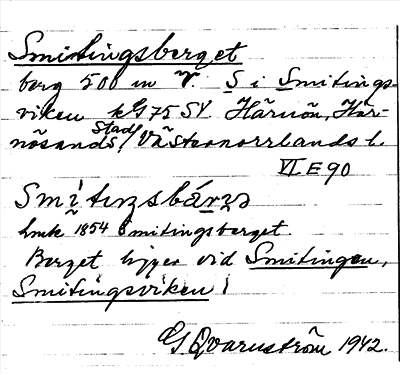 Smitingsberget
berg 500 m V. S i Smitings-
viken kG 75 SV Härnön, Här-
nösands Stad, Västernorrlands l.
VI E 90
Smitiŋsbárjə
lmk 1854 Smitingsberget.
Berget ligger vid Smitingen,
Smitingsviken!
G Qvarnström 1942.